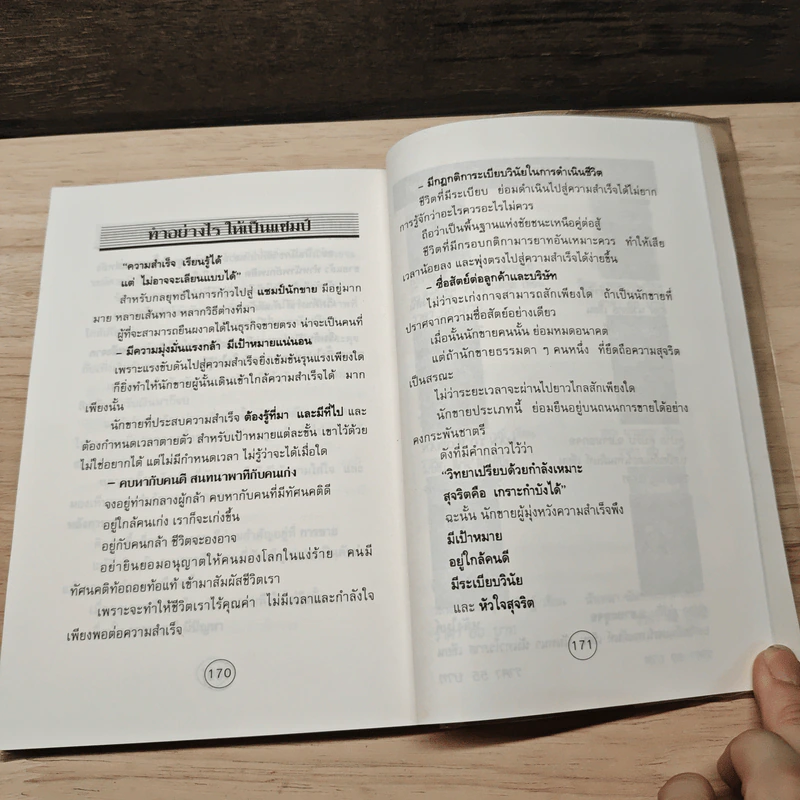 ทำอย่างไร ให้เป็นแชมป์
“ความสำเร็จ เรียนรู้ได้
แต่ ไม่อาจจะเลียนแบบได้”
สำหรับกลยุทธ์ในการก้าวไปสู่ แชมป์นักขาย มีอยู่มาก
มาย หลายเส้นทาง หลากวิธีต่างที่มา
ผู้ที่จะสามารถยืนผงาดได้ในธุรกิจขายตรง น่าจะเป็นคนที่
– มีความมุ่งมั่นแรงกล้า มีเป้าหมายแน่นอน
เพราะแรงขับดันไปสู่ความสำเร็จยิ่งเข้มข้นรุนแรงเพียงใด
ก็ยิ่งทำให้นักขายผู้นั้นเดินเข้าใกล้ความสำเร็จได้ มาก
เพียงนั้น
นักขายที่ประสบความสำเร็จ ต้องรู้ที่มา และมีที่ไป และ
ต้องกำหนดเวลาตายตัว สำหรับเป้าหมายแต่ละขั้น เขาไว้ด้วย
ไม่ใช่อยากได้ แต่ไม่มีกำหนดเวลา ไม่รู้ว่าจะได้เมื่อใด
– คบหากับคนดี สนทนาพาทีกับคนเก่ง
จงอยู่ท่ามกลางผู้กล้า คบหากับคนที่มีทัศนคติดี
อยู่ใกล้คนเก่ง เราก็จะเก่งขึ้น
อยู่กับคนกล้า ชีวิตจะองอาจ
อย่ายินยอมอนุญาตให้คนมองโลกในแง่ร้าย คนมี
ทัศนคติท้อถอยท้อแท้ เข้ามาสัมผัสชีวิตเรา
เพราะจะทำให้ชีวิตเราไร้คุณค่า ไม่มีเวลาและกำลังใจ
เพียงพอต่อความสำเร็จ
170
– มีกฎกติการะเบียบวินัยในการดำเนินชีวิต
ชีวิตที่มีระเบียบ ย่อมดำเนินไปสู่ความสำเร็จได้ไม่ยาก
การรู้จักว่าอะไรควรอะไรไม่ควร
ถือว่าเป็นพื้นฐานแห่งชัยชนะเหนือคู่ต่อสู้
ชีวิตที่มีกรอบกติกามารยาทอันเหมาะควร ทำให้เสีย
เวลาน้อยลง และพุ่งตรงไปสู่ความสำเร็จได้ง่ายขึ้น
– ซื่อสัตย์ต่อลูกค้าและบริษัท
ไม่ว่าจะเก่งกาจสามารถสักเพียงใด ถ้าเป็นนักขายที่
ปราศจากความซื่อสัตย์อย่างเดียว
เมื่อนั้นนักขายคนนั้น ย่อมหมดอนาคต
แต่ถ้านักขายธรรมดา ๆ คนหนึ่ง ที่ยึดถือความสุจริต
เป็นสรณะ
ไม่ว่าระยะเวลาจะผ่านไปยาวไกลสักเพียงใด
นักขายประเภทนี้ ย่อมยืนอยู่บนถนนการขายได้อย่าง
คงกระพันชาตรี
ดังที่มีคำกล่าวไว้ว่า
“วิทยาเปรียบด้วยกำลังเหมาะ
สุจริตคือ เกราะกำบังได้”
ฉะนั้น นักขายผู้มุ่งหวังความสำเร็จพึง
มีเป้าหมาย
อยู่ใกล้คนดี
มีระเบียบวินัย
และ หัวใจสุจริต
171